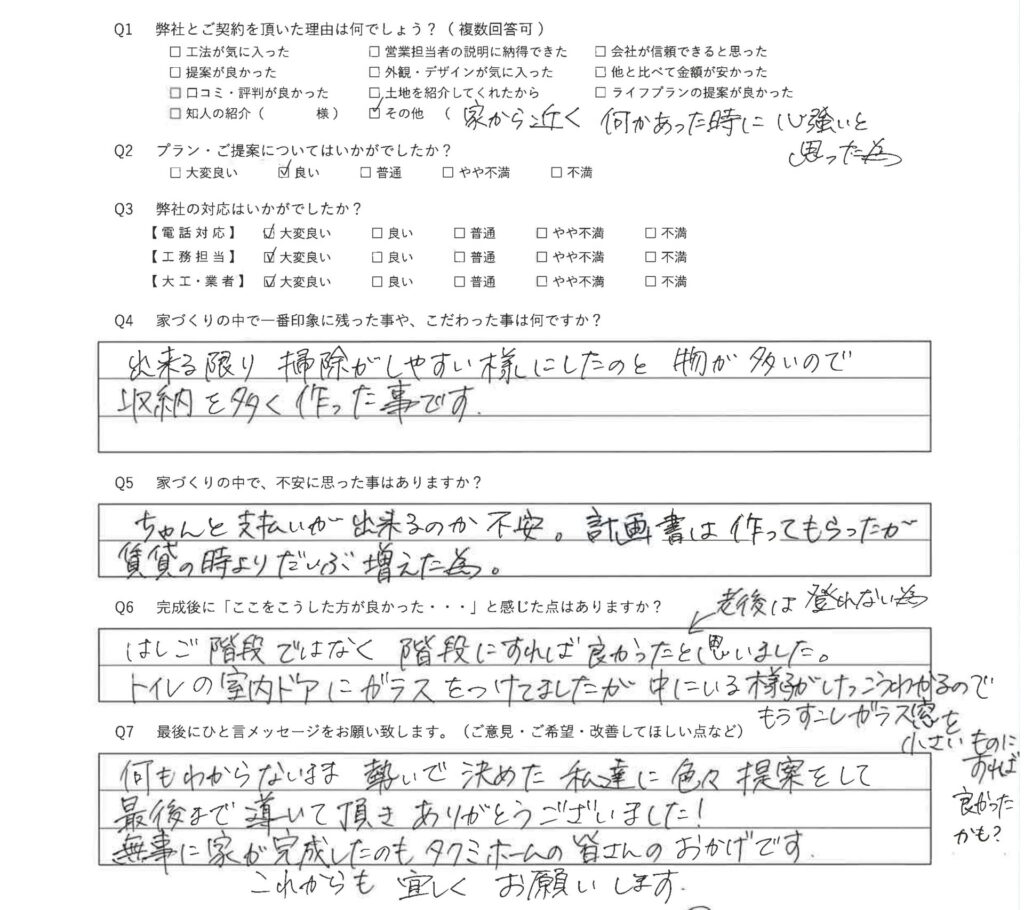 Q1 弊社とご契約を頂いた理由は何でしょう？（複数回答可）
□ 工法が気に入った □ 営業担当者の説明に納得できた □ 会社が信頼できると思った
□ 提案が良かった □ 外観・デザインが気に入った □ 他と比べて金額が安かった
□ 口コミ・評判が良かった □ 土地を紹介してくれたから □ ライフプランの提案が良かった
□ 知人の紹介（ 様） ☑ その他 （ 家から近く 何かあった時に心強いと
思った為
Q2 プラン・ご提案についてはいかがでしたか？
□ 大変良い ☑ 良い □ 普通 □ やや不満 □ 不満
Q3 弊社の対応はいかがでしたか？
【電話対応】 ☑ 大変良い □ 良い □ 普通 □ やや不満 □ 不満
【工務担当】 ☑ 大変良い □ 良い □ 普通 □ やや不満 □ 不満
【大工・業者】 ☑ 大変良い □ 良い □ 普通 □ やや不満 □ 不満
Q4 家づくりの中で一番印象に残った事や、こだわった事は何ですか？
出来る限り 掃除がしやすい様にしたのと 物が多いので
収納を多く作った事です.
Q5 家づくりの中で、不安に思った事はありますか？
ちゃんと支払いが出来るのか不安。計画書は作ってもらったが
賃貸の時よりだいぶ増えた為。
Q6 完成後に「ここをこうした方が良かった・・・」と感じた点はありますか？
老後は登れない為
はしご階段ではなく 階段にすれば良かったと思いました。
トイレの室内ドアにガラスをつけてましたが 中にいる様子がけっこうわかるので
もうすこしガラス窓を
小さいものに
すれば
良かった
かも？
Q7 最後にひと言メッセージをお願い致します。（ご意見・ご希望・改善してほしい点など）
何もわからないまま 勢いで決めた私達に色々提案をして
最後まで導いて頂きありがとうございました！
無事に家が完成したのもタクミホームの皆さんのおかげです.
これからも宜しくお願いします.